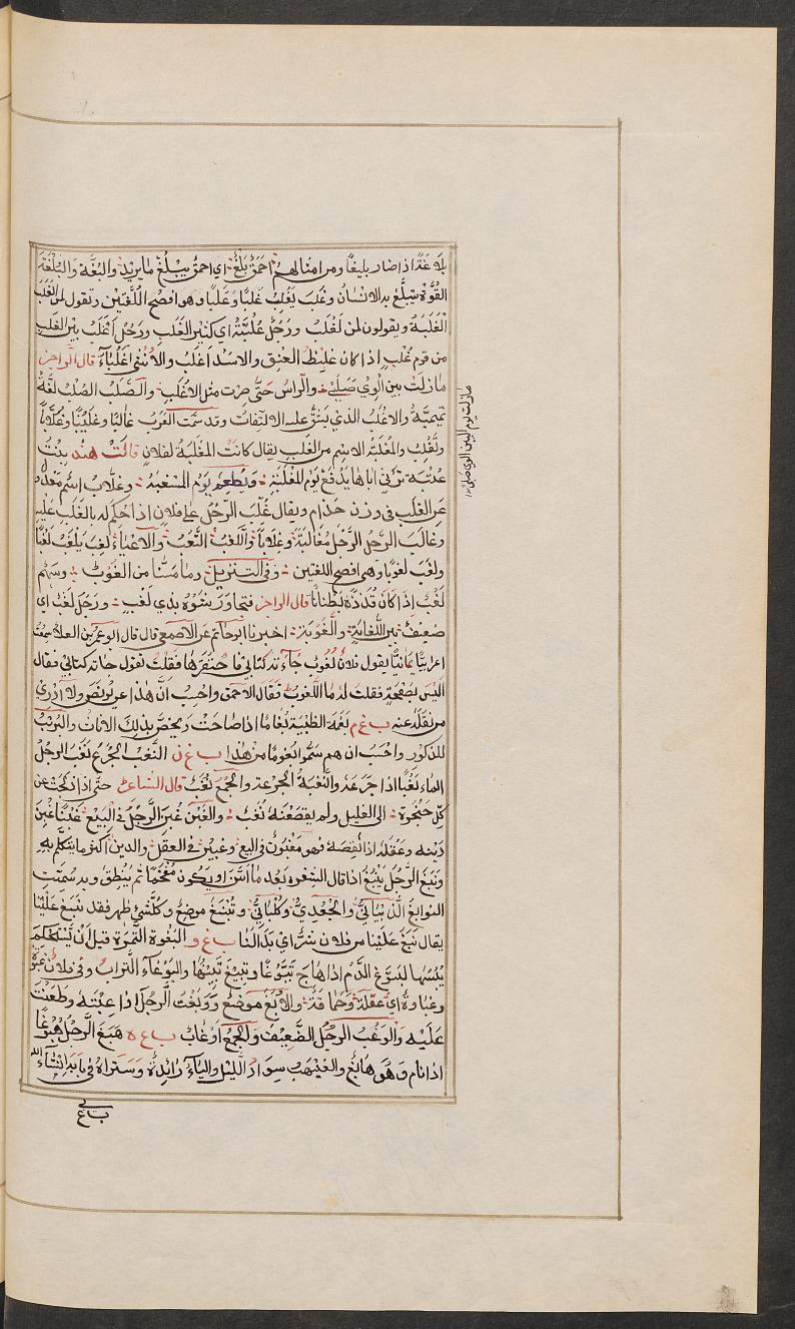 بلاغة اذا صار بليغا ومن امثالهم احمق بلغ اى احمق يبلغ ما يريد والبلغة والبلغة
القوة يتبلغ به الانسان وغلب يغلب غلبا وغلبا وهو افصح اللغتين وتقول لمن الغلب
الغلبة ويقولون لمن لغلب ورجل غلبة اى كثير الغلب ورجل اغلب بين الغلب
من قوم غلب اذا كان غليظ العنق والاسد اغلب والانثى اغلباء قال الراجز
مازلت يوم البين الوى صلبى
مازلت بين الوى صلبى والراس حتى صرت مثل الاغلب والصلب الصلب لغة
تميمية والاغلب الذى يشق عليه الالتفات وقد سمت العرب غالبا وغليبا وغلابا
وتغلب والمغلبة الاسم من الغلب يقال كانت المغلبة لفلان قالت هند بنت
عتبة ترثى اباها يدفع يوم المغلبة ويطعم يوم المسغبة وغلاب اسم معدول
عن الغلب فى وزن حذام ويقال غلب الرجل على فلان اذا حكم له بالغلب عليه
وغالب الرجل الرجل مغالبة وغلابا واللغب التعب والاعياء لغب يلغب لغبا
ولغب لغوبا وهى افصح اللغتين وفى التنزيل وما مسنا من لغوب وسهم
لغب اذا كان قذذه بطنانا قال الراجز فنجا ورشوه بذى لغب ورجل لغب اى
ضعيف بين اللغابة واللغوبة اخبرنا ابو حاتم عن الاصمعى قال قال ابو عمرو بن العلا سمعت
اعرابيا يمانيا يقول فلان لغوب جاءته كتابى فاحتقرها فقلت تقول جاءته كتابى فقال
اليس بصحيفة فقلت له ما اللغوب فقال الاحمق واحسب ان هذا عن يونس ولا ادرى
من نقله عنه ب غ م بغمة الظبية بغاما اذا صاحت ويخص بذلك الاناث والنزيب
للذكور واحسب ان هم سموا بغوما من هذا ب غ ن النغب الجرع نغب الرجل
الماء نغبا اذا جرعه والنغبة الجرعة والجمع نغب قال الشاعر حتى اذا زلجت عن
كل حنجرة الى الغليل ولم يقصعنه نغب والغبن غبن الرجل فى البيع غبنا غبن
دينه وعقله اذا نقصه فهو مغبون فى البيع وغبين فى العقل والدين اكثر ما يتكلم به
ونبغ الرجل ينبغ اذا قال الشعر بعد ما اسن او يكون مفحما ثم ينطق وبه سميت
النوابغ الذبيانى والجعدى وكلبانى وتنبغ موضع وكل شئ ظهر فقد نبغ علينا
يقال نبغ علينا من فلان شر اى بدا لنا ب غ و البغوة الثمرة قبل ان يستحكم
يبسها لتبوغ الدم اذا هاج تبوغا وتبيغ تبيغا والبوغاء التراب وفى فلان غبوة
وغباوة اى غفلة وحماقة والابغ موضع ووبغت الرجل اذا عبته وطعنت
عليه والوغب الرجل الضعيف والجمع اوغاب ب غ ه هبغ الرجل هبوغا
اذا نام وهو هابغ والغيهب سواد الليل والياء زائدة وستراه فى بابه ان شاء الله
ب غ ى